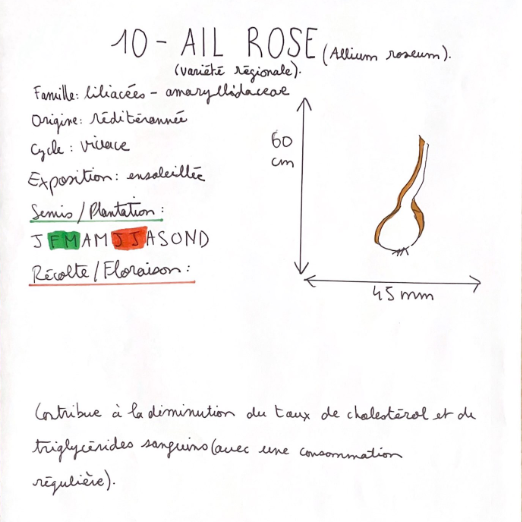 10 - AIL ROSE (Allium roseum).
(variété régionale).
Famille: liliacées - amaryllidaceae
Origine: Méditérannée
Cycle : vivace
Exposition : ensoleillée
Semis / Plantation :
J F M A M J J A S O N D
Récolte / Floraison :
60
cm
45 mm
Contribue à la diminution du taux de cholestérol et de
triglycérides sanguins (avec une consommation
régulière).